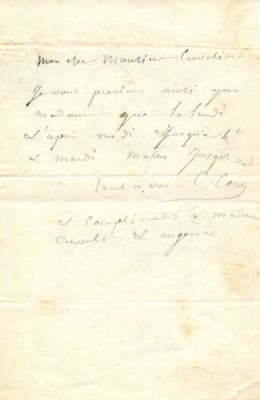 Mon cher Monsieur Cuvelier
Je vous previens ainsi que
madame que le lundi
L'apres midi. Jusqu'a 4h
& mardi Matin Jusqu. midi
tout à vous C. Corot
& compliments à madame
Cuvelier &